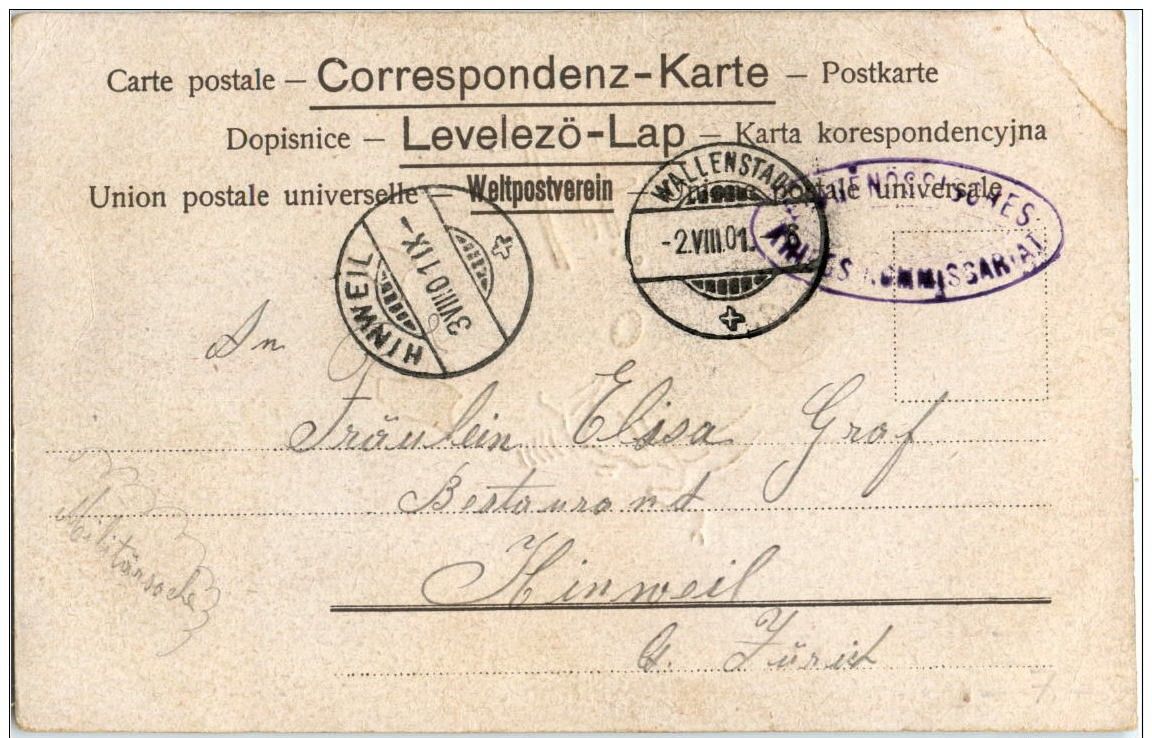 Carte postale — Correspondenz-Karte — Postkarte
Dopisnice — Levelező-Lap — Karta korespondencyjna
Union postale universelle — Weltpostverein — postale universale
WALLENSTADT
-2.VIII.01.-6
HINWEIL
3.VIII.01 IX-
KRIEGS KOMMISSARIAT
An
Fräulein Elisa Graf
Restaurand
Hinweil
Ct. Zürich
Militärsache